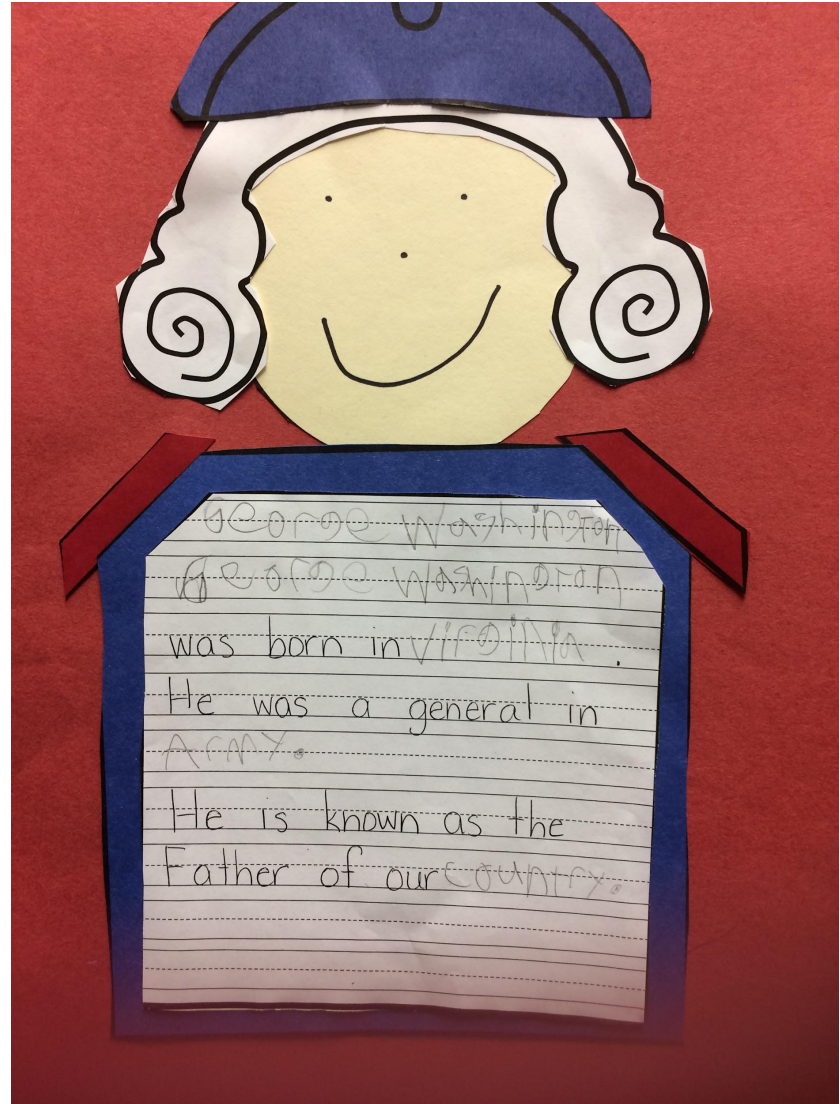 George Washington
George Washington
was born in Virginia .
He was a general in
Army.
He is known as the
Father of our country.